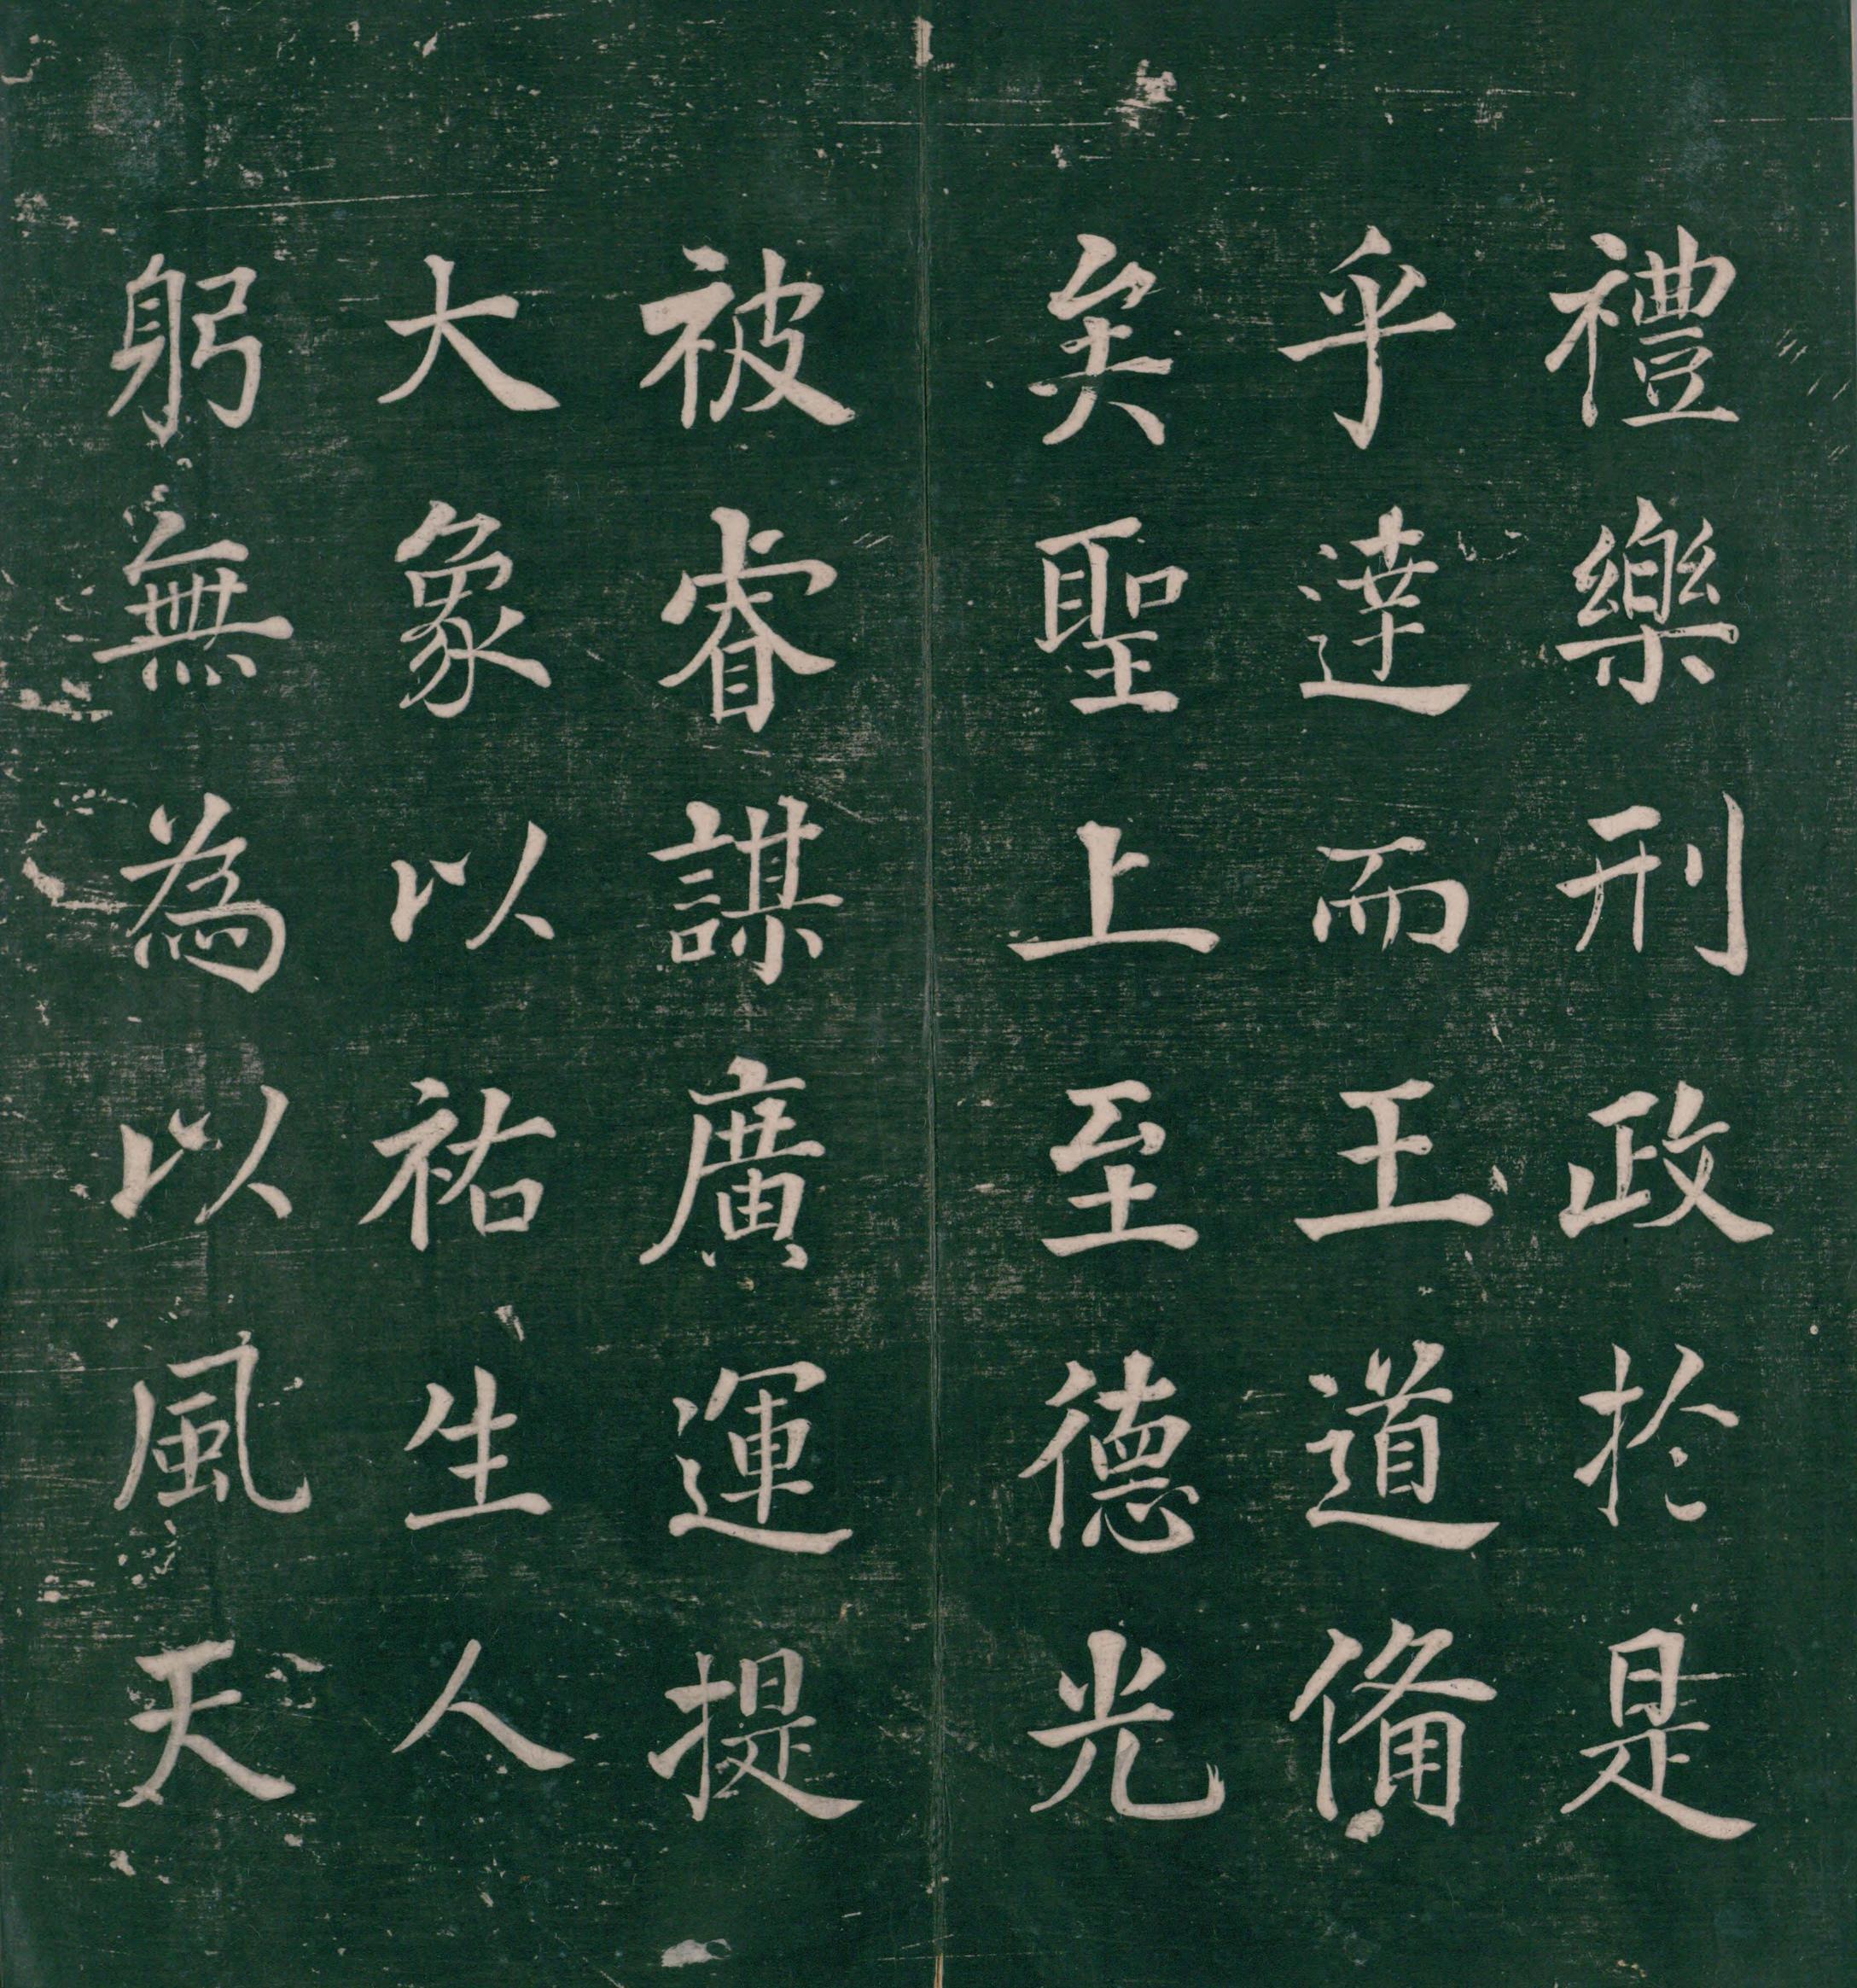 禮樂刑政於是
乎達而王道備
矣聖上至德光
被睿謀廣運提
大象以祐生人
躬無為以風天